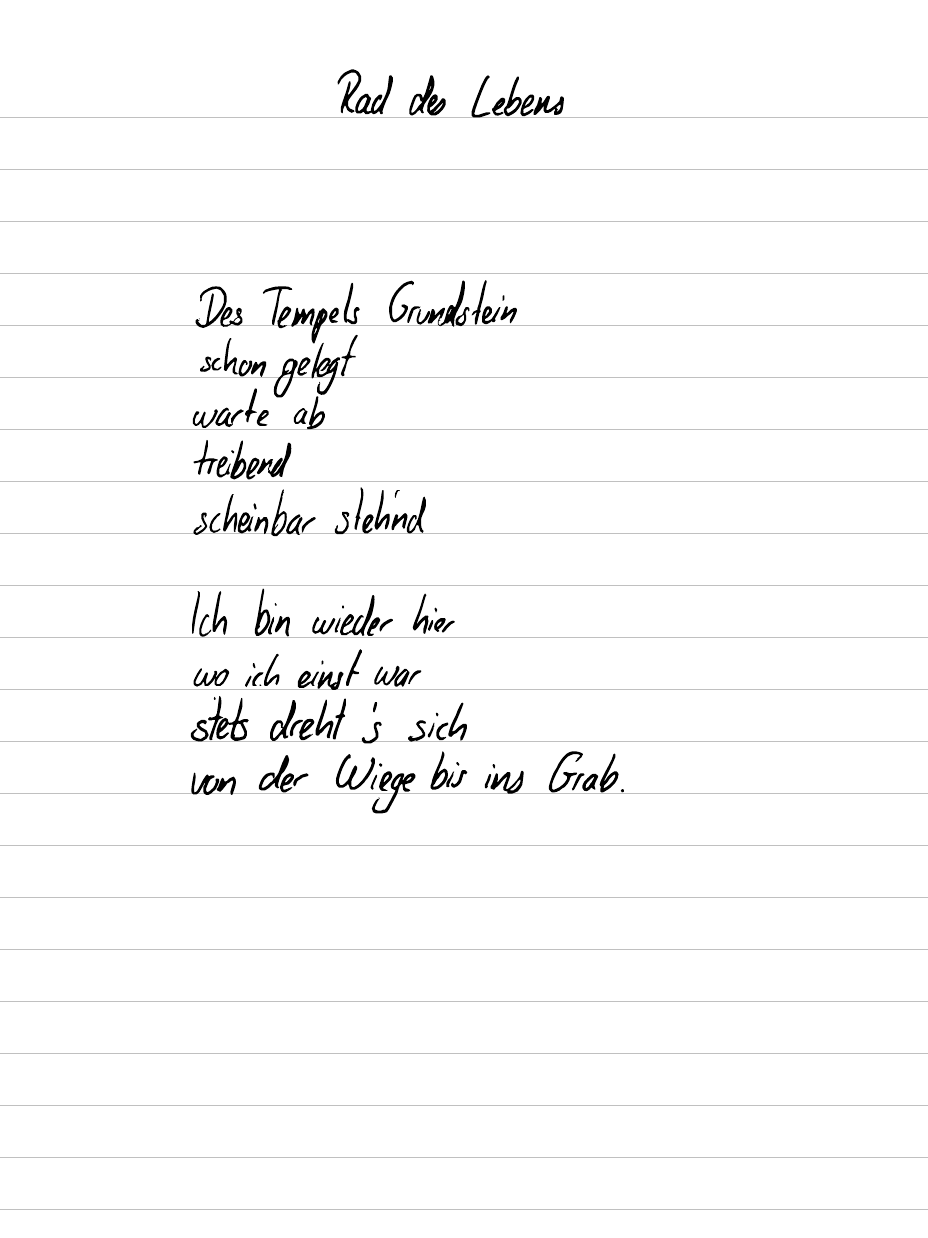 Rad des Lebens
Des Tempels Grundstein
schon gelegt
warte ab
treibend
scheinbar steh'nd
Ich bin wieder hier
wo ich einst war
stets dreht's sich
von der Wiege bis ins Grab.